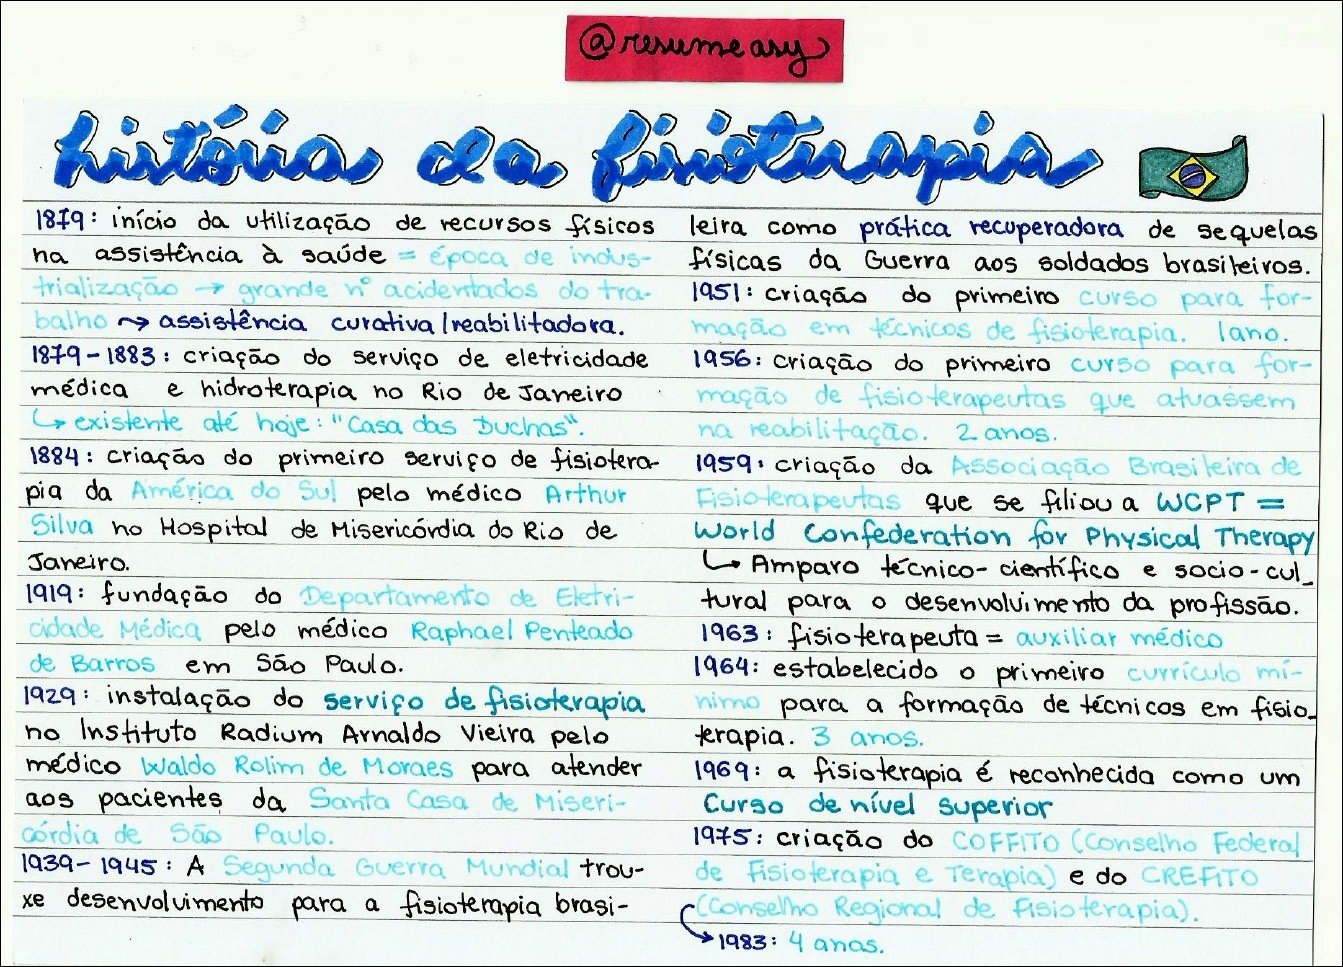 @resumeasy
história da fisioterapia
1879: início da utilização de recursos físicos
na assistência à saúde = época de indus-
trialização → grande nº acidentados do tra-
balho ⤳ assistência curativa/reabilitadora.
1879-1883: criação do serviço de eletricidade
médica e hidroterapia no Rio de Janeiro
↳ existente até hoje: "Casa das Duchas".
1884: criação do primeiro serviço de fisiotera-
pia da América do Sul pelo médico Arthur
Silva no Hospital de Misericórdia do Rio de
Janeiro.
1919: fundação do Departamento de Eletri-
cidade Médica pelo médico Raphael Penteado
de Barros em São Paulo.
1929: instalação do serviço de fisioterapia
no Instituto Radium Arnaldo Vieira pelo
médico Waldo Rolim de Moraes para atender
aos pacientes da Santa Casa de Miseri-
córdia de São Paulo.
1939-1945: A Segunda Guerra Mundial trou-
xe desenvolvimento para a fisioterapia brasi-
leira como prática recuperadora de sequelas
físicas da Guerra aos soldados brasileiros.
1951: criação do primeiro curso para for-
mação em técnicos de fisioterapia. 1ano.
1956: criação do primeiro curso para for-
mação de fisioterapeutas que atuassem
na reabilitação. 2 anos.
1959: criação da Associação Brasileira de
Fisioterapeutas que se filiou a WCPT =
World Confederation for Physical Therapy
↳ Amparo técnico-científico e socio-cul_
tural para o desenvolvimento da profissão.
1963: fisioterapeuta = auxiliar médico
1964: estabelecido o primeiro currículo mí-
nimo para a formação de técnicos em fisio_
terapia. 3 anos.
1969: a fisioterapia é reconhecida como um
Curso de nível superior
1975: criação do COFFITO (Conselho Federal
de Fisioterapia e Terapia) e do CREFITO
(Conselho Regional de Fisioterapia).
→ 1983: 4 anos.